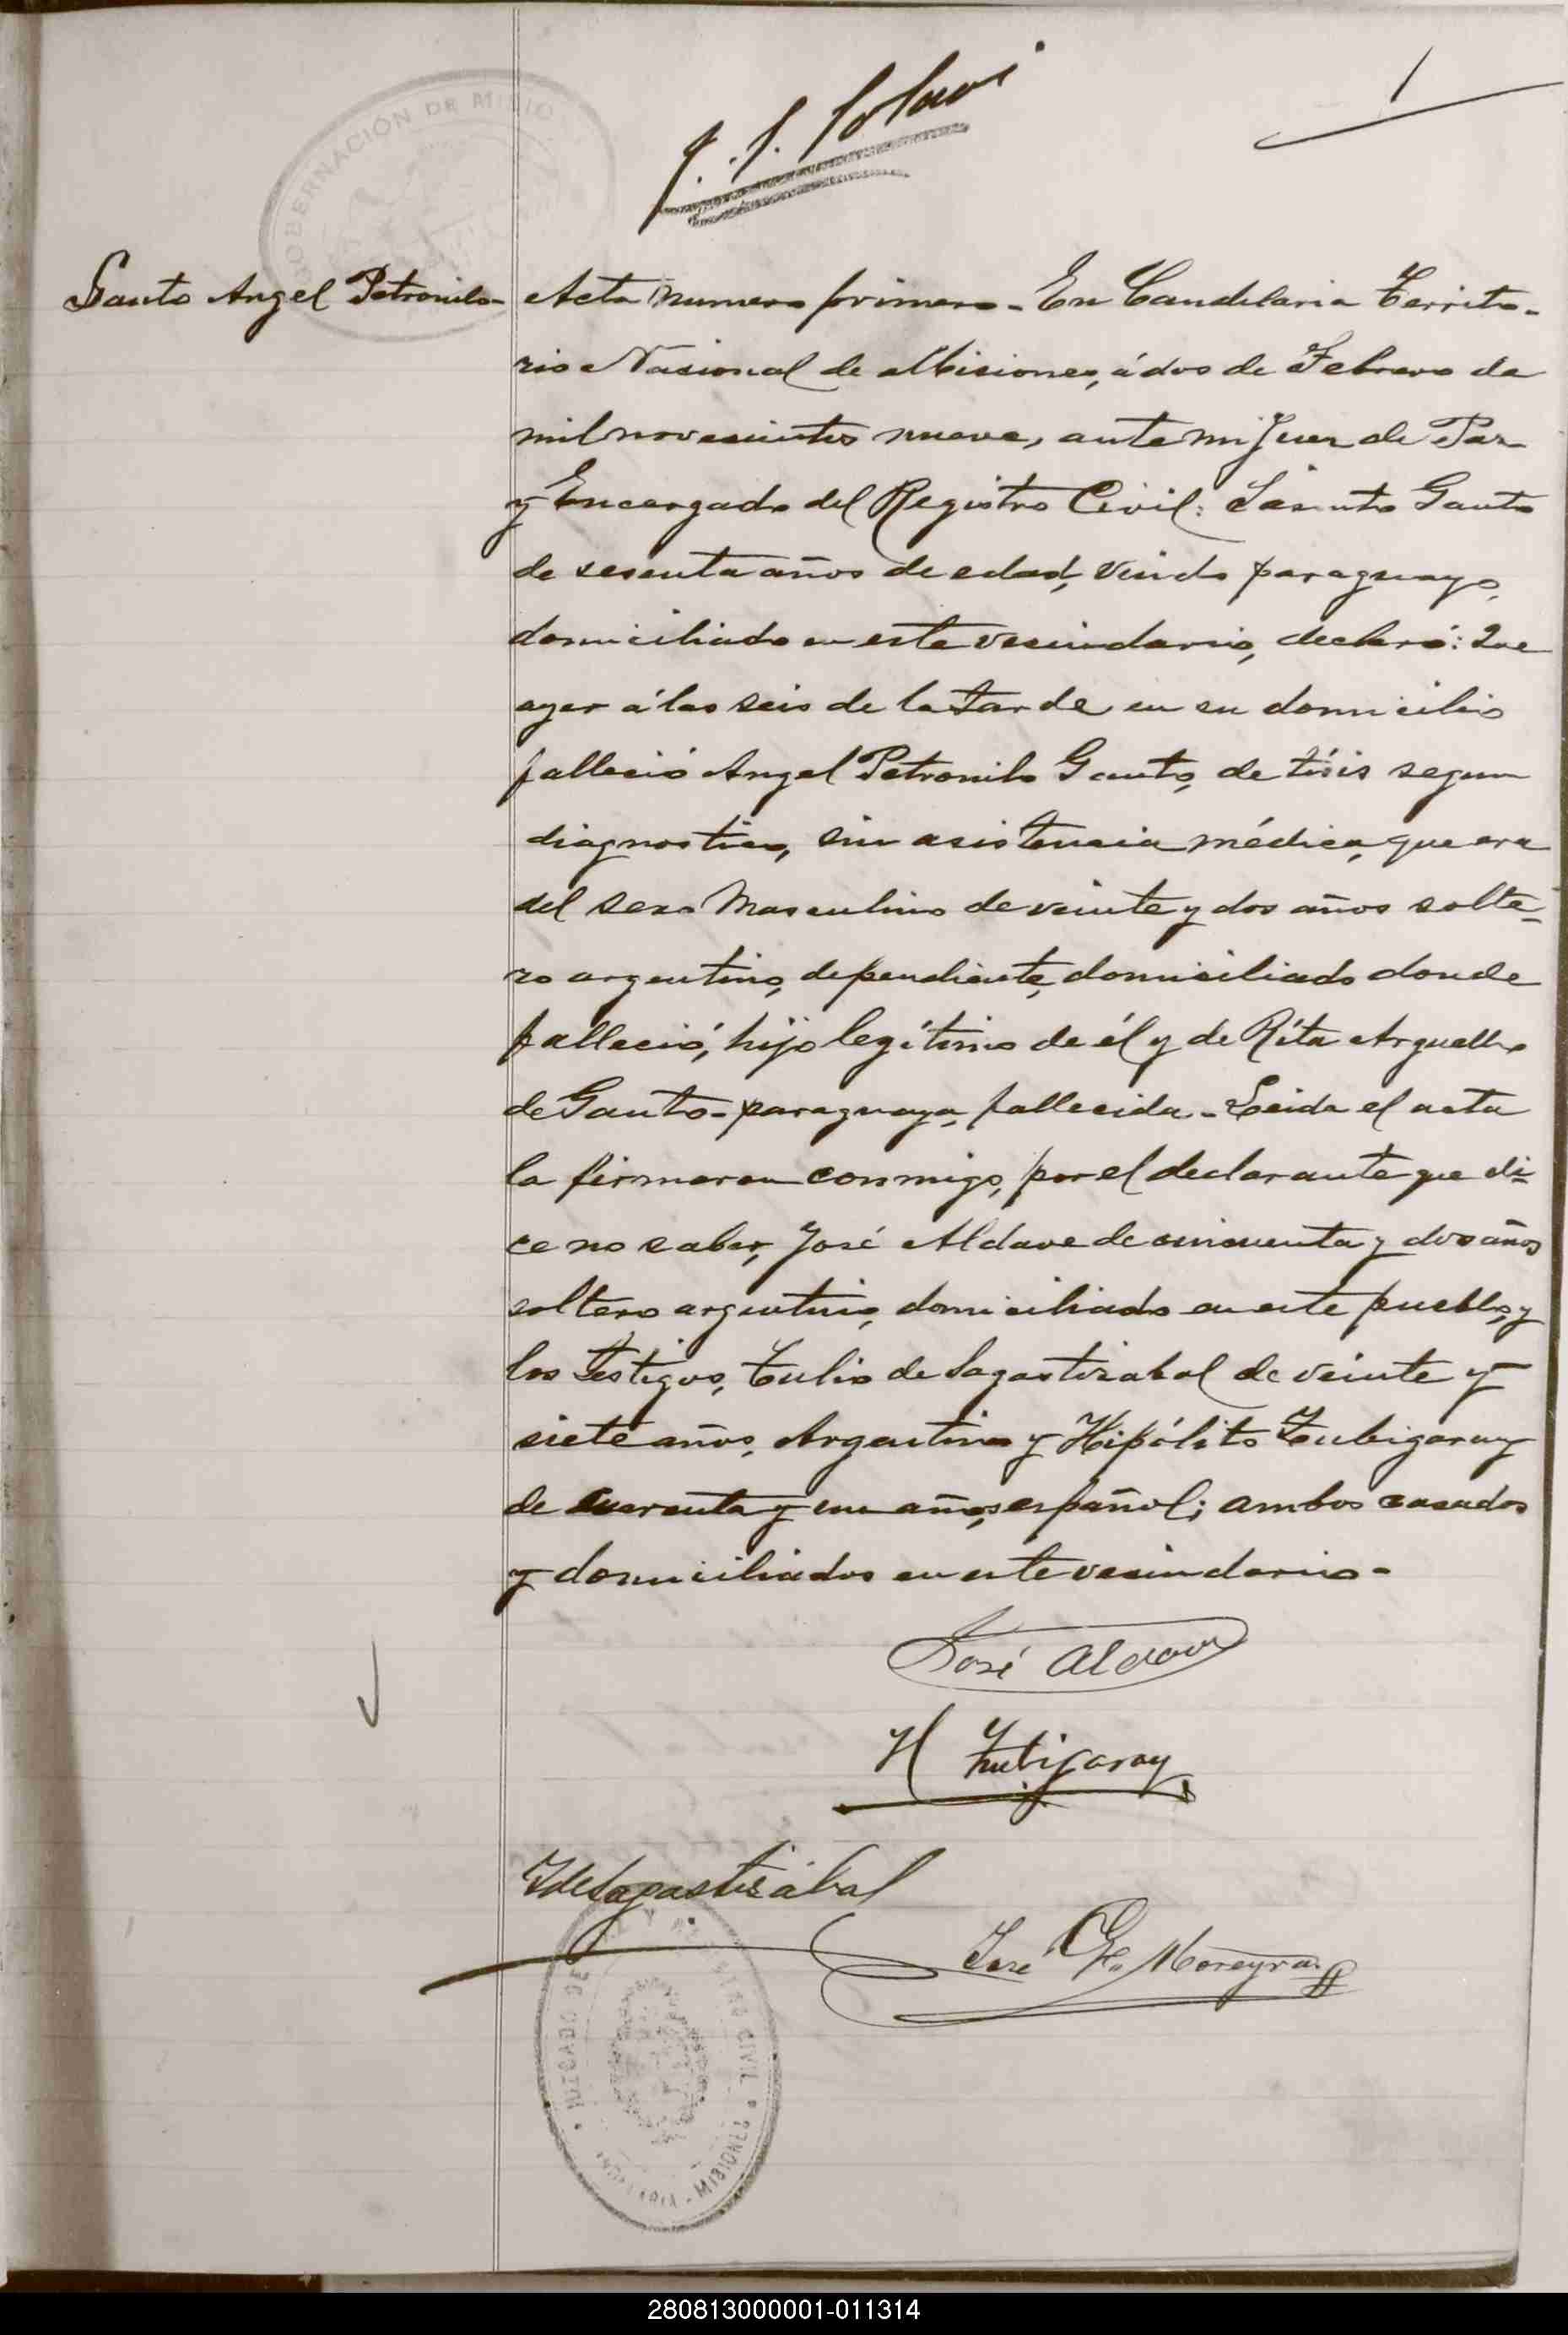 GOBERNACIÓN DE MISIO
1
Gauto Angel Petronilo-
Acta numero primero - En Candelaria Territo-
rio Nasional de Misiones, á dos de Febrero de
mil novecientos nueve, ante mi Juez de Paz
y Encargado del Registro Civil: Gauto
de sesenta años de edad, viudo paraguayo,
domiciliado en este vecindario, declaró: Que
ayer á las seis de la tarde en su domicilio
falleció Angel Petronilo Gauto, de tísis segun
diagnostico, sin asistencia médica, que era
del sexo Masculino de veinte y dos años solte-
ro argentino, dependiente, domiciliado donde
falleció, hijo legítimo de él y de Rita Arguello
de Gauto - paraguaya, fallecida - Leida el acta
la firmaron conmigo, por el declarante que di-
ce no saber, José Aldave de cincuenta y dos años
soltero argentino, domiciliado en este pueblo, y
los testigos, Tulio de Sagastizabal de veinte y
siete años, Argentino y Hipólito Zubigaray
de cuarenta y un años, español; ambos casados
y domiciliados en este vecindario -
José Aldave
H Zubigaray
TdeSagastizábal
José G. Moreyra
JUZGADO DE PAZ Y REGISTRO CIVIL
CANDELARIA - MISIONES
280813000001-011314